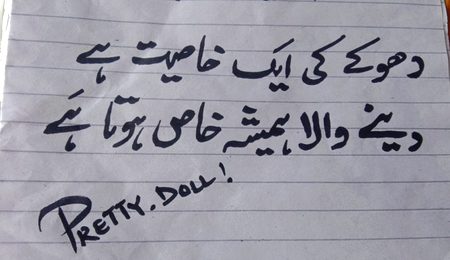 دھوکے کی ایک خاصیت ہے
دینے والا ہمیشہ خاص ہوتا ہے
PRETTY. DOLL!